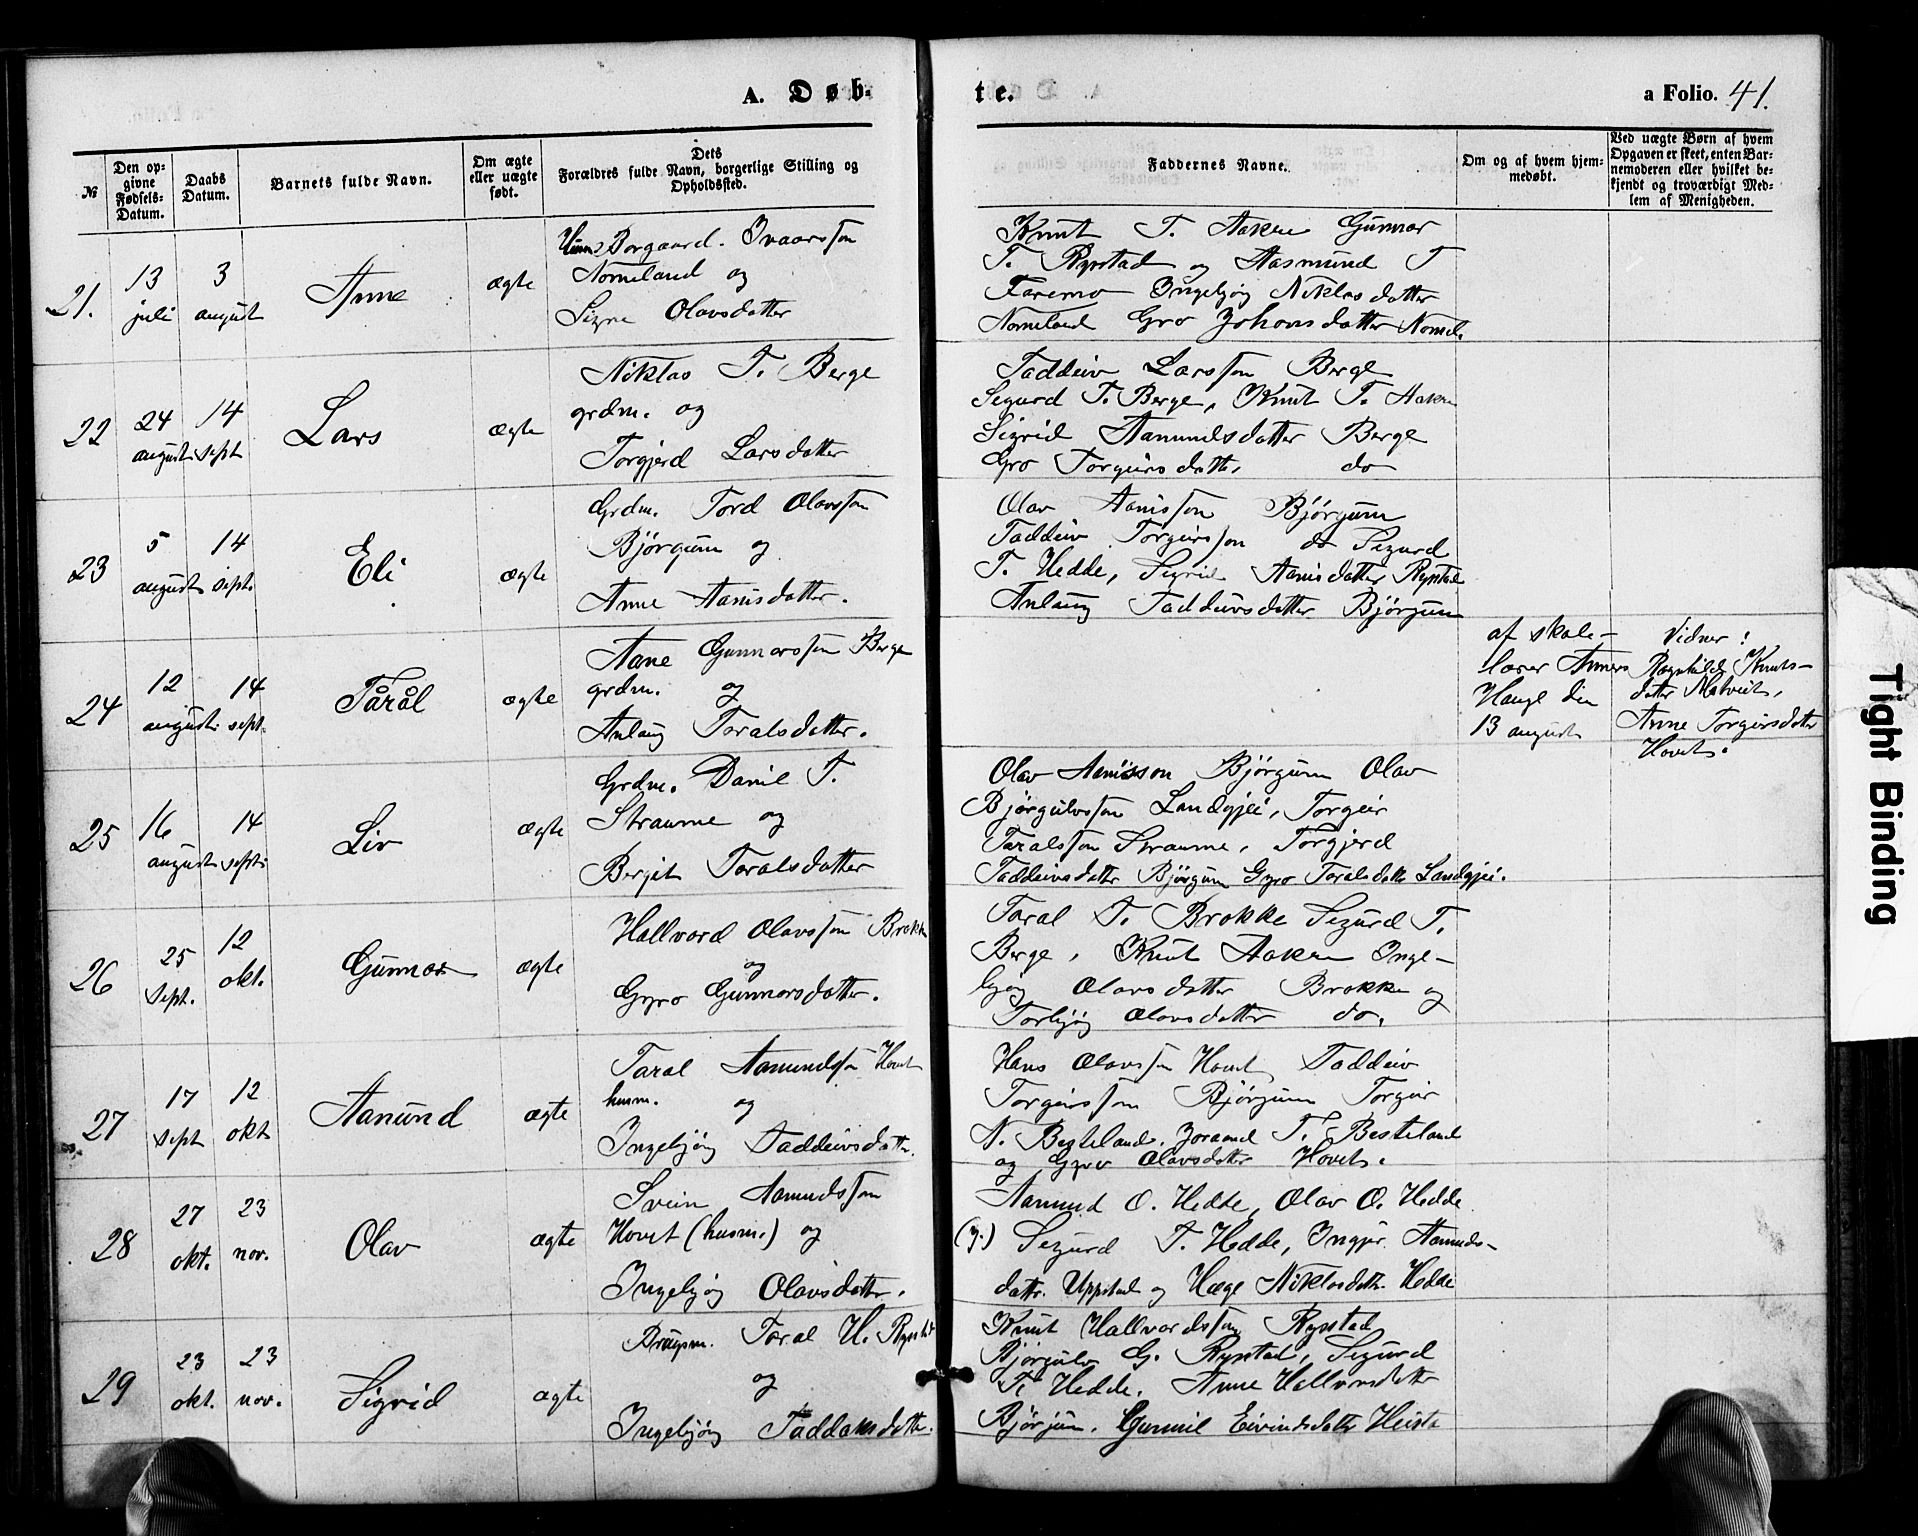 A. Døb-
te.
a Folio. 41.
№
Den op-
givne
Fødsels-
Datum.
Daabs
Datum.
Barnets fulde Navn.
Om ægte
eller uægte
født.
Dets
Forældres fulde Navn, borgerlige Stilling og
Opholdssted.
Faddernes Navne.
Om og af hvem hjem-
medøbt.
Ved uægte Børn af hvem
Opgaven er skeet, enten Bar-
nemoderen eller hvilket be-
kjendt og troværdigt Med-
lem af Menigheden.
21.
13
juli
3
august
Anne
ægte
Borgaard. Ivaarsson
Nomeland og
Signe Olavsdatter
Knut T. Aaken Gunnar
T. Rystad og Aasmund T
Faremo Ingebjøg Niklosdatter
Nomeland Gro Johonsdatter Nomel.
22
24
august
14
sept
Lars
ægte
Niklas T. Berge
grdm. og
Torgjerd Larsdatter
Taddeiv Larsson Berge
Segurd T. Berge, Knut T. Aaken
Sigrid Aanundsdatter Berge
Gro Torgeirsdatter do
23
5
august
14
sept.
Eli
ægte
Grdm. Tord Olavsson
Bjørgum og
Anne Aanisdatter.
Olav Aanisson Bjørgum
Taddeiv Torgeirsson do Segurd
T. Hedde, Sigrid Aanisdatter Rystad
Anlaug Taddeivsdatter Bjørgum
24
12
august.
14
sept.
Tårål
ægte
Aane Gunnarsson Berge
grdm. og
Anlaug Toralsdatter.
af skole-
lærer Anners
Hauge den
13 august
Vidner!
Ragnhild Knuts-
datter Metveit,
Anne Torgeirsdatter
Hovet.
25
16
august
14
sept.
Liv
ægte
Grdm. Daniel T.
Straume og
Bergit Toralsdatter
Olav Aanisson Bjørgum Olav
Bjørgulvsson Landgjei, Torgeir
Taralsson Straume, Torgjerd
Taddeivsdatter Bjørgum Gyro Toralsdatt. Landgjei.
26
25
sept.
12
okt.
Gunnar
ægte
Hallvard Olavsson Brokke
og
Gyro Gunnarsdatter.
Taral T. Brokke Segurd T.
Berge, Knut Aaken Inge-
bjøg Olavsdatter Brokke og
Torbjøg Olavsdatter do.
27
17
sept
12
okt
Aanund
ægte
Taral Aanundsson Hovet
husm. og
Ingebjøg Taddeivsdatter.
Hans Olavsson Hovet, Taddeiv
Torgeirsson Bjørgum Torgeir
N. Besteland. Joraand T. Besteland
og Gyro Olavsdatter Hovet.
28
27
okt.
23
nov.
Olav
ægte
Svein Aanundsson
Hovet (husm.) og
Ingebjøg Olavsdatter.
Aanund O. Hedde, Olav O. Hedde
(y.) Segurd T. Hedde, Ingjer. Aanunds-
dattr. Uppstad og Hæge Niklosdatt. Hedde
29
23
okt.
23
nov.
Sigrid
ægte
Taral H. Rystad
og
Ingebjøg
Knut Hallvardsson Rystad
Bjørgulv G. Rystad, Segurd
T. Hedde. Anne Hallvarsdatter
Bjørgum. Gunnil Eivindsdatter Heistø
Tight Binding